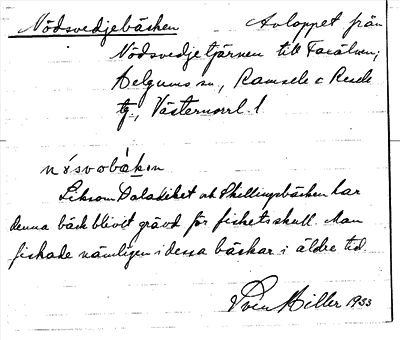 Nödsvedjebäcken Avloppet från
Nödsvedjetjärnen till Faxälven,
Helgums sn, Ramsele o Resele
tg, Västernorrl. l
nɔ́svobä̀kɛn
Liksom Daladiket och Skellingsbäcken har
denna bäck blivit grävd för fiskets skull. Man
fiskade nämligen i dessa bäckar i äldre tid.
Sven Hiller 1933